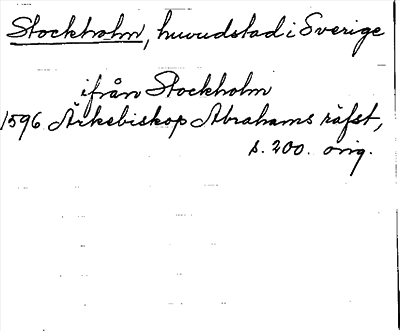 Stockholm, huvudstad i Sverige
ifrån Stockholm
1596 Ärkebiskop Abrahams räfst,
s. 200. orig.